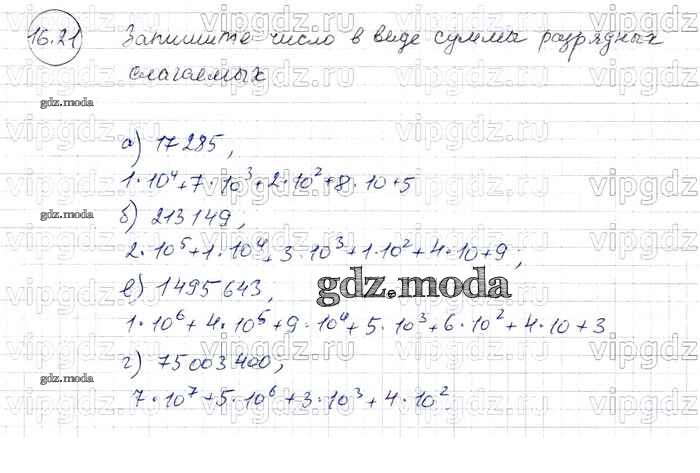 16.21 Запишите число в виде суммы разрядных
слагаемых
gdz.moda
а) 17285,
1·10⁴+7·10³+2·10²+8·10+5
gdz.moda
б) 213149,
2·10⁵+1·10⁴+3·10³+1·10²+4·10+9;
в) 1495643,
gdz.moda
1·10⁶+4·10⁵+9·10⁴+5·10³+6·10²+4·10+3
г) 75003400,
gdz.moda
7·10⁷+5·10⁶+3·10³+4·10²
vipgdz.ru